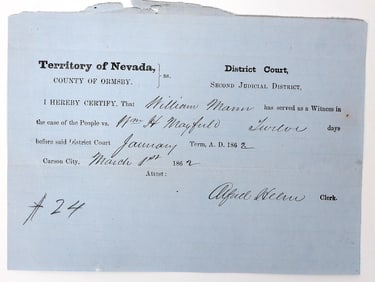 Territory of Nevada, } ss. District Court,
COUNTY OF ORMSBY. SECOND JUDICIAL DISTRICT,
I HEREBY CERTIFY, That William Mann has served as a Witness in
the case of the People vs. Wm H Mayfield Twelve days
before said District Court January Term, A. D. 1862
Carson City, March 1st 1862
Attest:
Alfred Helm Clerk.
# 24